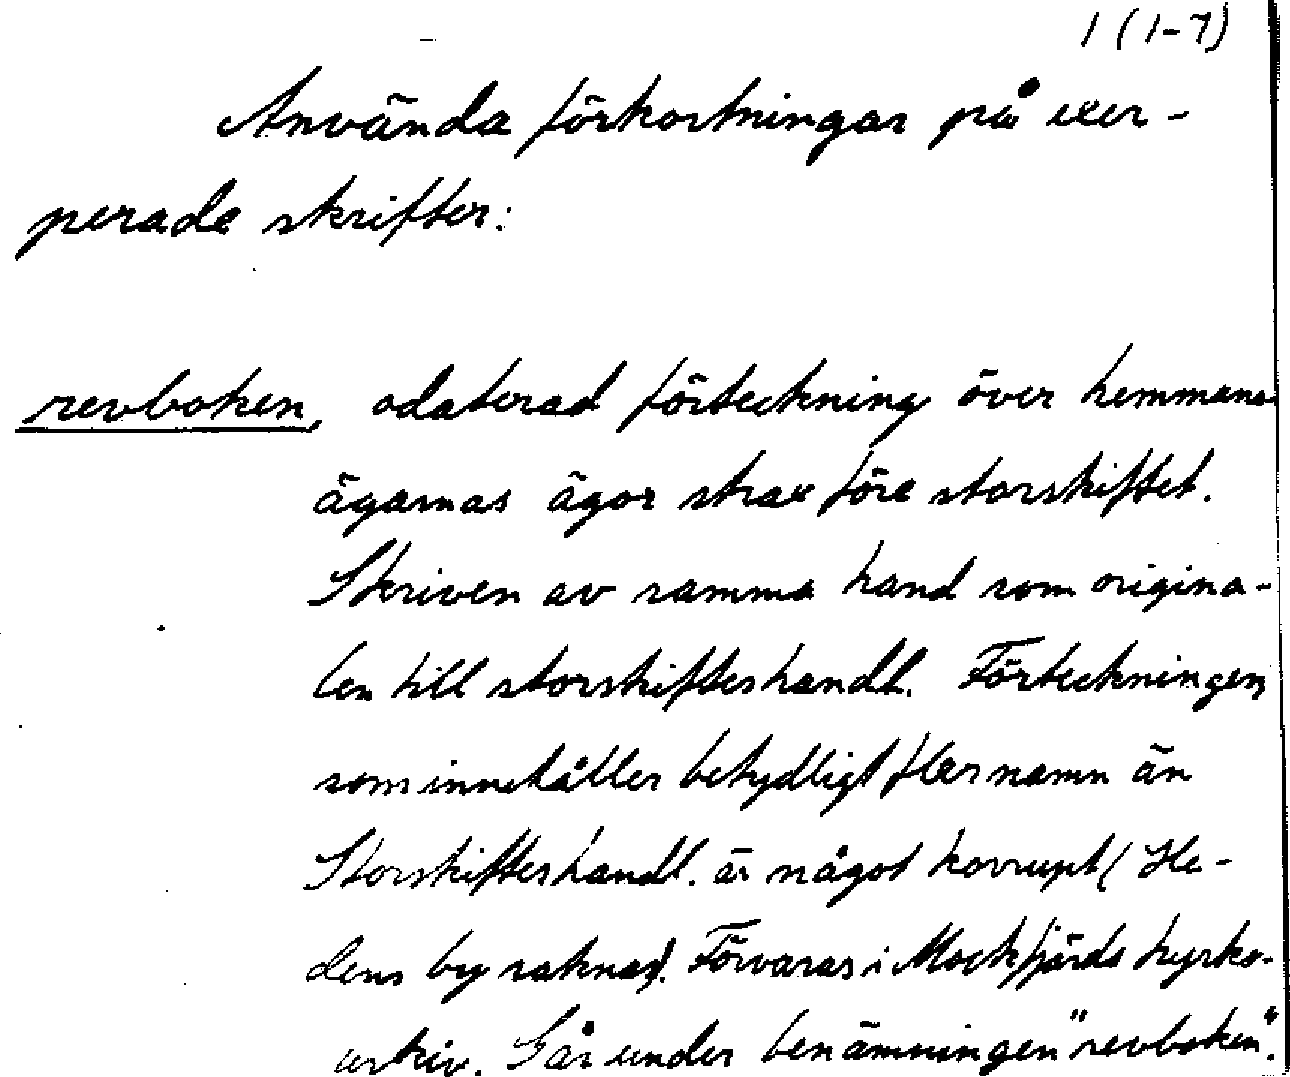 1 (1-7)
Använda förkortningar på excer-
perade skrifter:
revboken, odaterad förteckning över hemmans-
ägarnas ägor strax före storskiftet.
Skriven av samma hand som origina-
len till storskifteshandl. Förteckningen
som innehåller betydligt fler namn än
Storskifteshandl. är något korrupt (He-
dens by saknas). Förvaras i Mockfjärds kyrko-
arkiv. Går under benämningen "revboken".